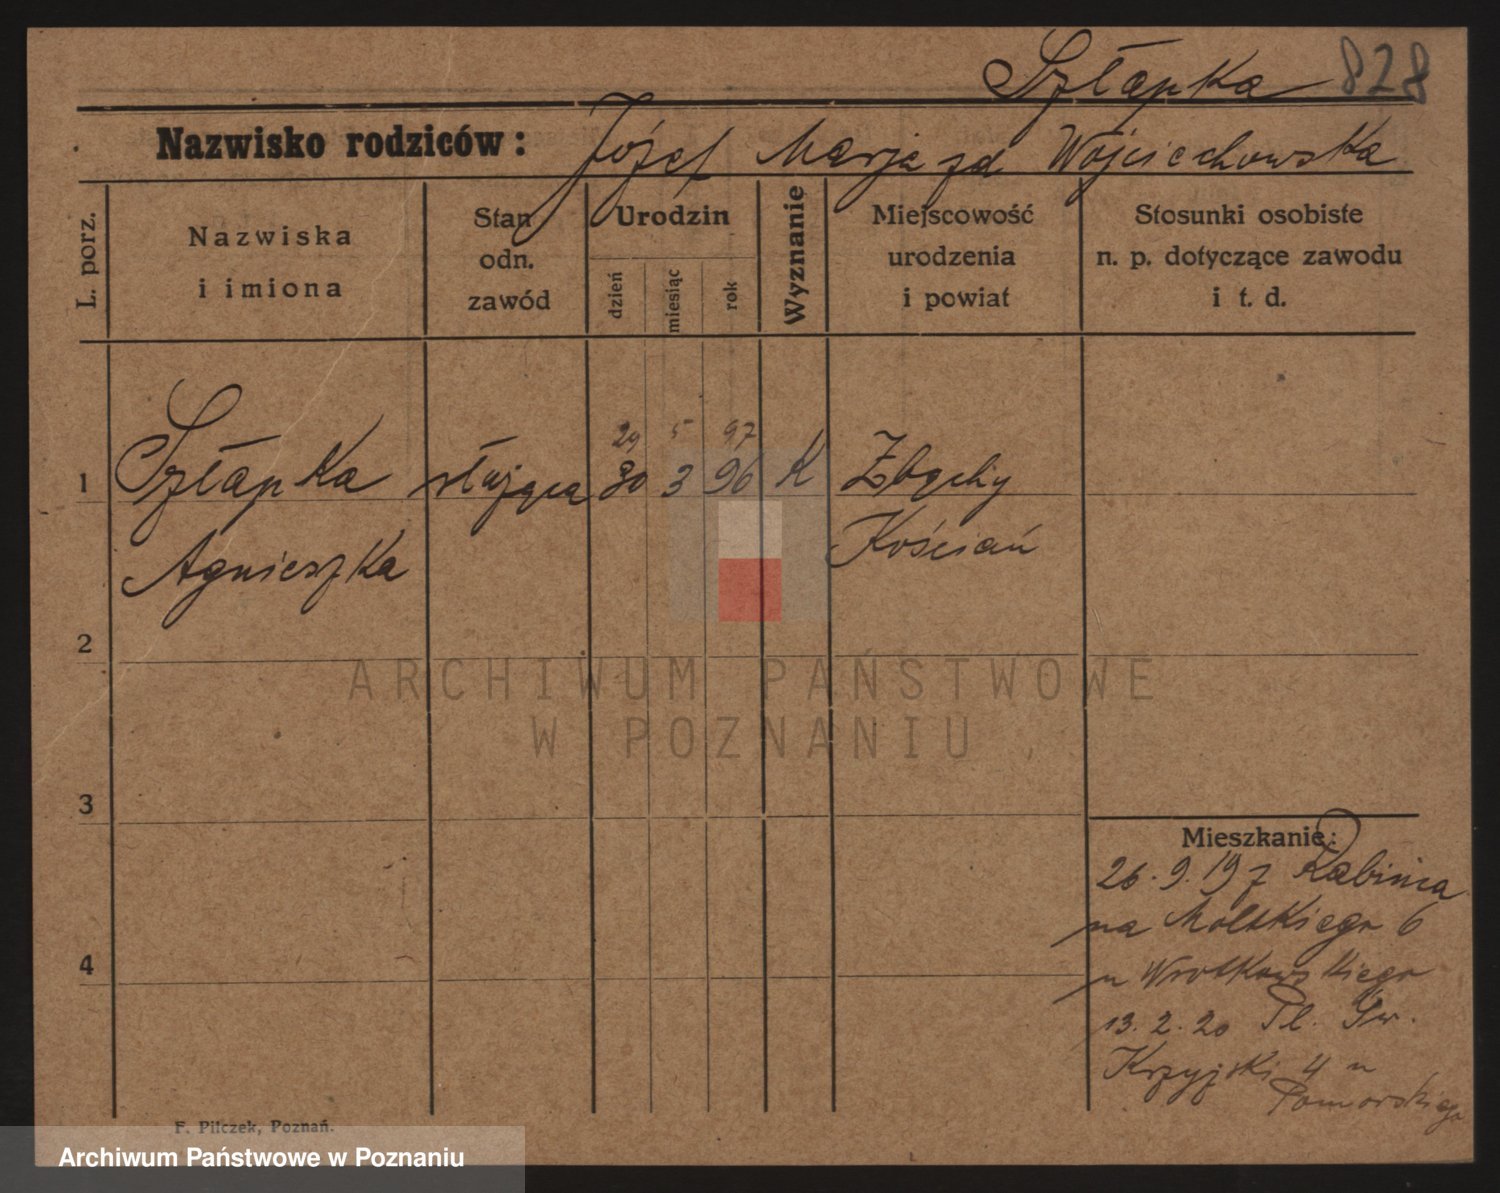 Szłapka 828
Nazwisko rodziców: Józef Marja zd Wojciechowska
L. porz.
Nazwiska
i imiona
Stan
odn.
zawód
Urodzin
dzień
miesiąc
rok
Wyznanie
Miejscowość
urodzenia
i powiat
Stosunki osobiste
n. p. dotyczące zawodu
i t. d.
29 5 97
1 Szłapka służąca 30 3 96 K Zbęchy
Agnieszka Kościan
2
ARCHIWUM PAŃSTWOWE
W POZNANIU
3
Mieszkanie:
26.9.19 z Rąbinia
na Moltkiego 6
u Wrotkowskiego
13.2.20 Pl. Św.
Krzyjski 4 u
Pomorskiego
4
F. Pilczek, Poznań.
Archiwum Państwowe w Poznaniu